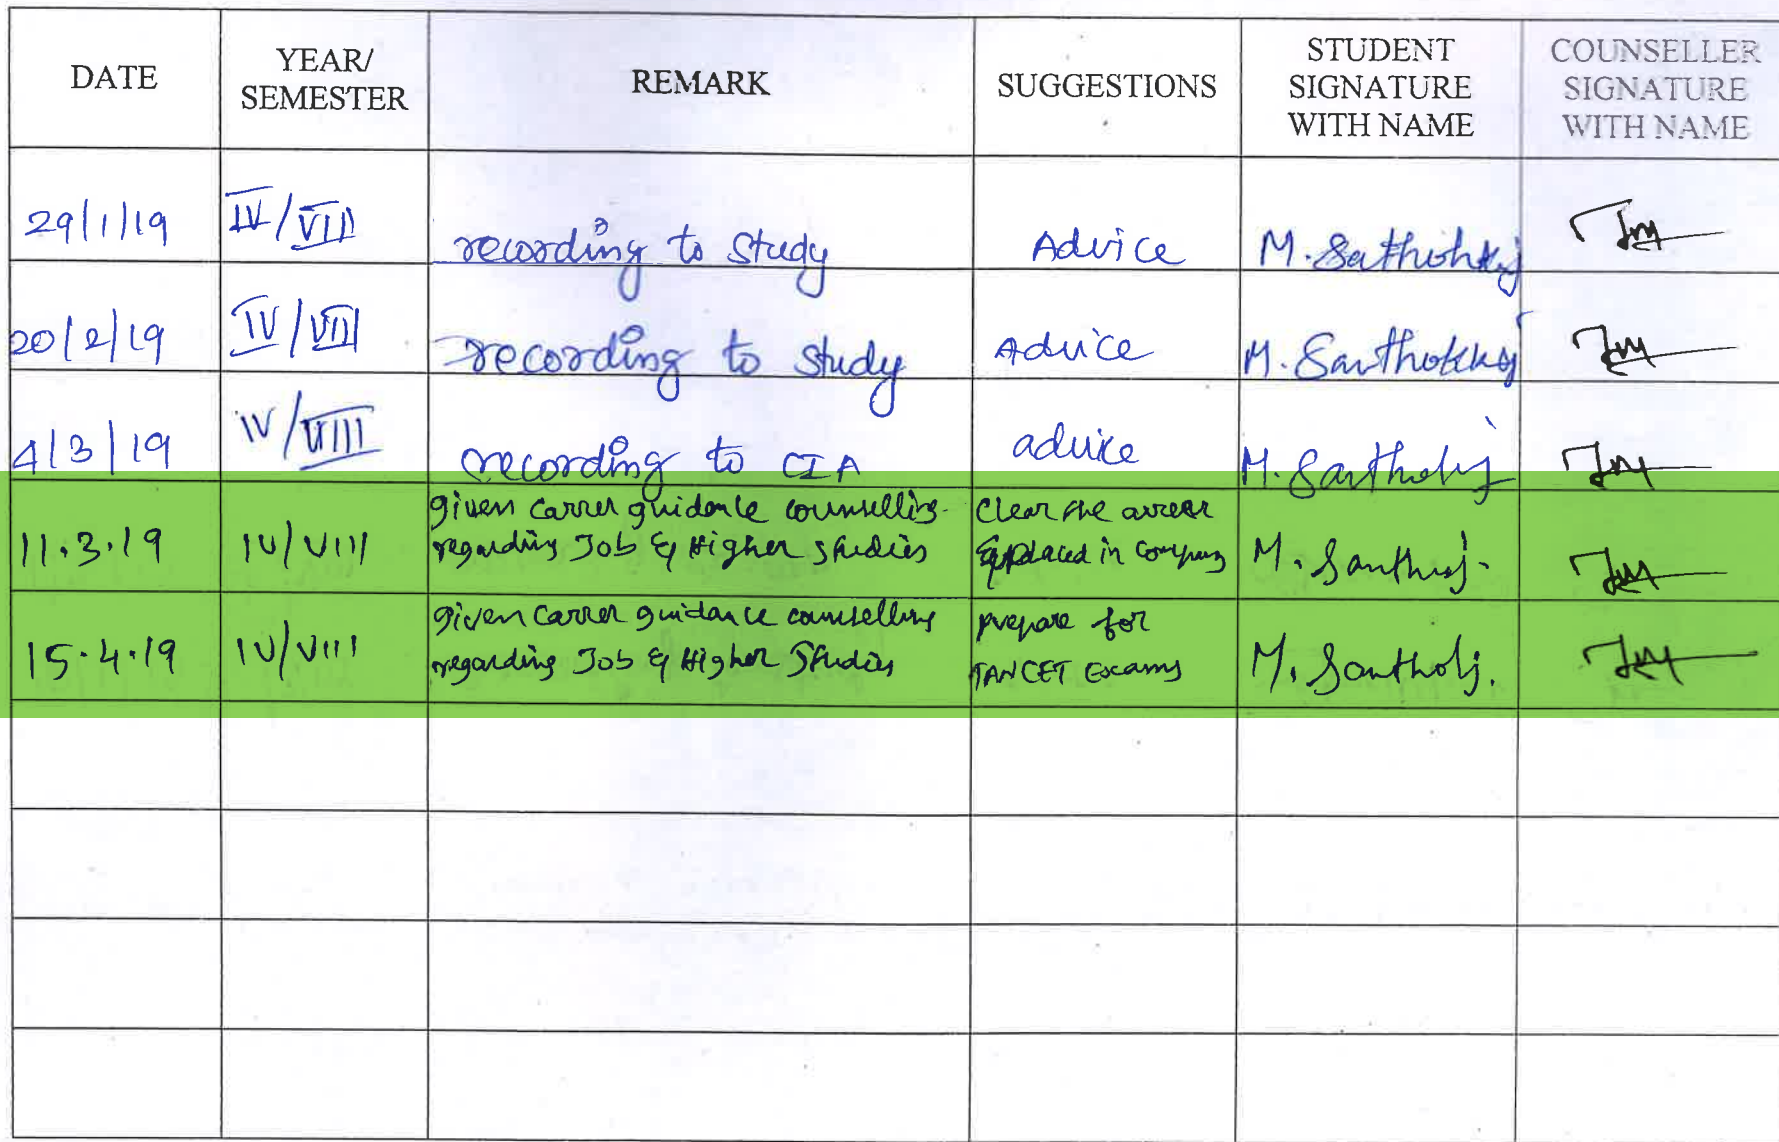 DATE
YEAR/
SEMESTER
REMARK
SUGGESTIONS
STUDENT
SIGNATURE
WITH NAME
COUNSELLER
SIGNATURE
WITH NAME
29/1/19 IV/VII recording to Study Advice M.
20/2/19 IV/VII recording to study Advice M.
4/3/19 IV/VIII recording to CIA advice M.
11.3.19 IV/VIII
given carrer guidance counselling
regarding Job & Higher studies
clear the arrear
& placed in company
M.
15.4.19 IV/VIII
given carrer guidance counselling
regarding Job & Higher Studies
prepare for
TANCET Exams
M.